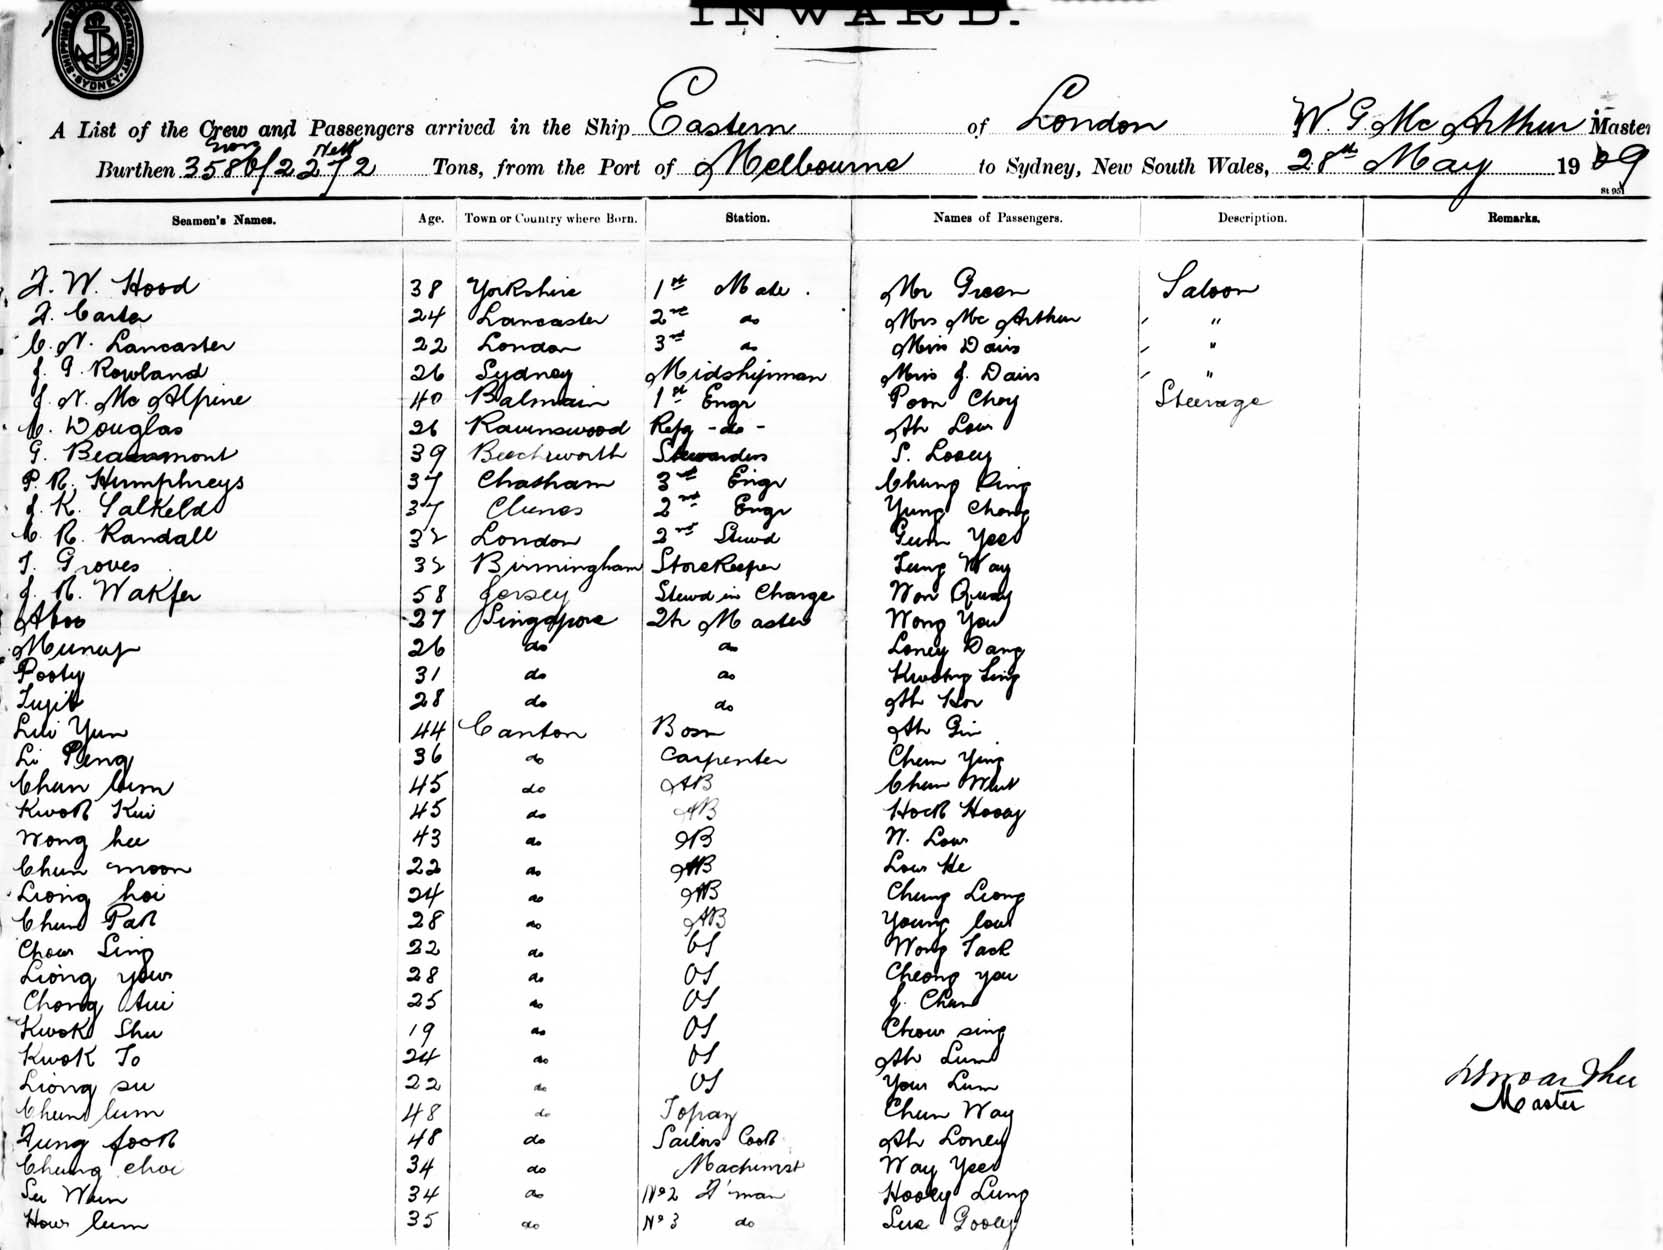 INWARD.
SHIPPING MASTER'S DEPARTMENT SYDNEY
A List of the Crew and Passengers arrived in the Ship Eastern of London W. G. Mc Arthur Master
Gross Nett
Burthen 3586/2272 Tons, from the Port of Melbourne to Sydney, New South Wales, 28th May 1909
St 951
Seamen's Names. Age. Town or Country where Born. Station. Names of Passengers. Description. Remarks.
F. W. Hood 38 Yorkshire 1st Mate. Mr Green Saloon
F. Carter 24 Lancaster 2nd do Mrs Mc Arthur "
C. N. Lancaster 22 London 3rd do Miss Davis "
J. G. Rowland 26 Sydney Midshipman Miss J. Davis "
J. N. Mc Alpine 40 Balmain 1st Engr Poon Choy Steerage
C. Douglas 26 Ravenswood Refg - do - Ah Low
G. Beaumont 39 Beechworth Stewardess S. Looey
P. R. Humphreys 37 Chatham 3rd Engr Chung King
J. K. Salkeld 37 Clunes 2nd Engr Yung Chong
C. R. Randall 32 London 2nd Stewd Gum Yee
T. Groves 32 Birmingham Storekeeper Tung Way
J. R. Wakfer 58 Jersey Stewd in Charge Won Quay
Aboo 27 Singapore Qtr Master Wong You
26 do do Loney Dang
Pooty 31 do do Kwong Sing
28 do do Ah Hor
Lui Yun 44 Canton Bosn Ah Gin
Li Peng 36 do Carpenter Chun Ying
Chun lum 45 do AB Chun
Kwok Kui 45 do AB Hock Hooey
Wong hee 43 do AB W. Low
Chun moon 22 do AB Low He
Liong hoi 24 do AB Chung Liong
Chun Pak 28 do AB Young low
Chow Sing 22 do OS Wong Tack
Liong yow 28 do OS Cheong you
Chong Hui 25 do OS J. Chun
Kwok Shu 19 do OS Chow sing
Kwok To 24 do OS Ah Lum
Liong su 22 do OS Your Lum
Master
Chun lum 48 do Topaz Chun Way
Fung fook 48 do Sailors Cook Ah Loney
Chung choi 34 do Machinist Way Yee
Su Wun 34 do No 2 F'man Hooey Lung
How lum 35 do No 3 do Sue Gooey